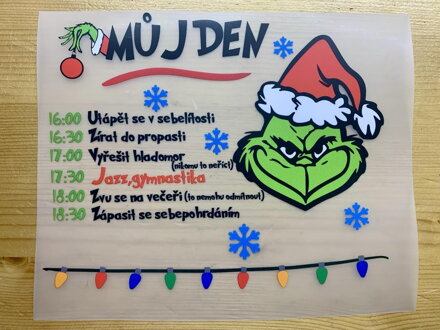 MŮJ DEN
16:00 Utápět se v sebelítosti
16:30 Zírat do propasti
17:00 Vyřešit hladomor (nikomu to neříct)
17:30 Jazz,gymnastika
18:00 Zvu se na večeři (to nemohu odmítnout)
18:30 Zápasit se sebepohrdáním